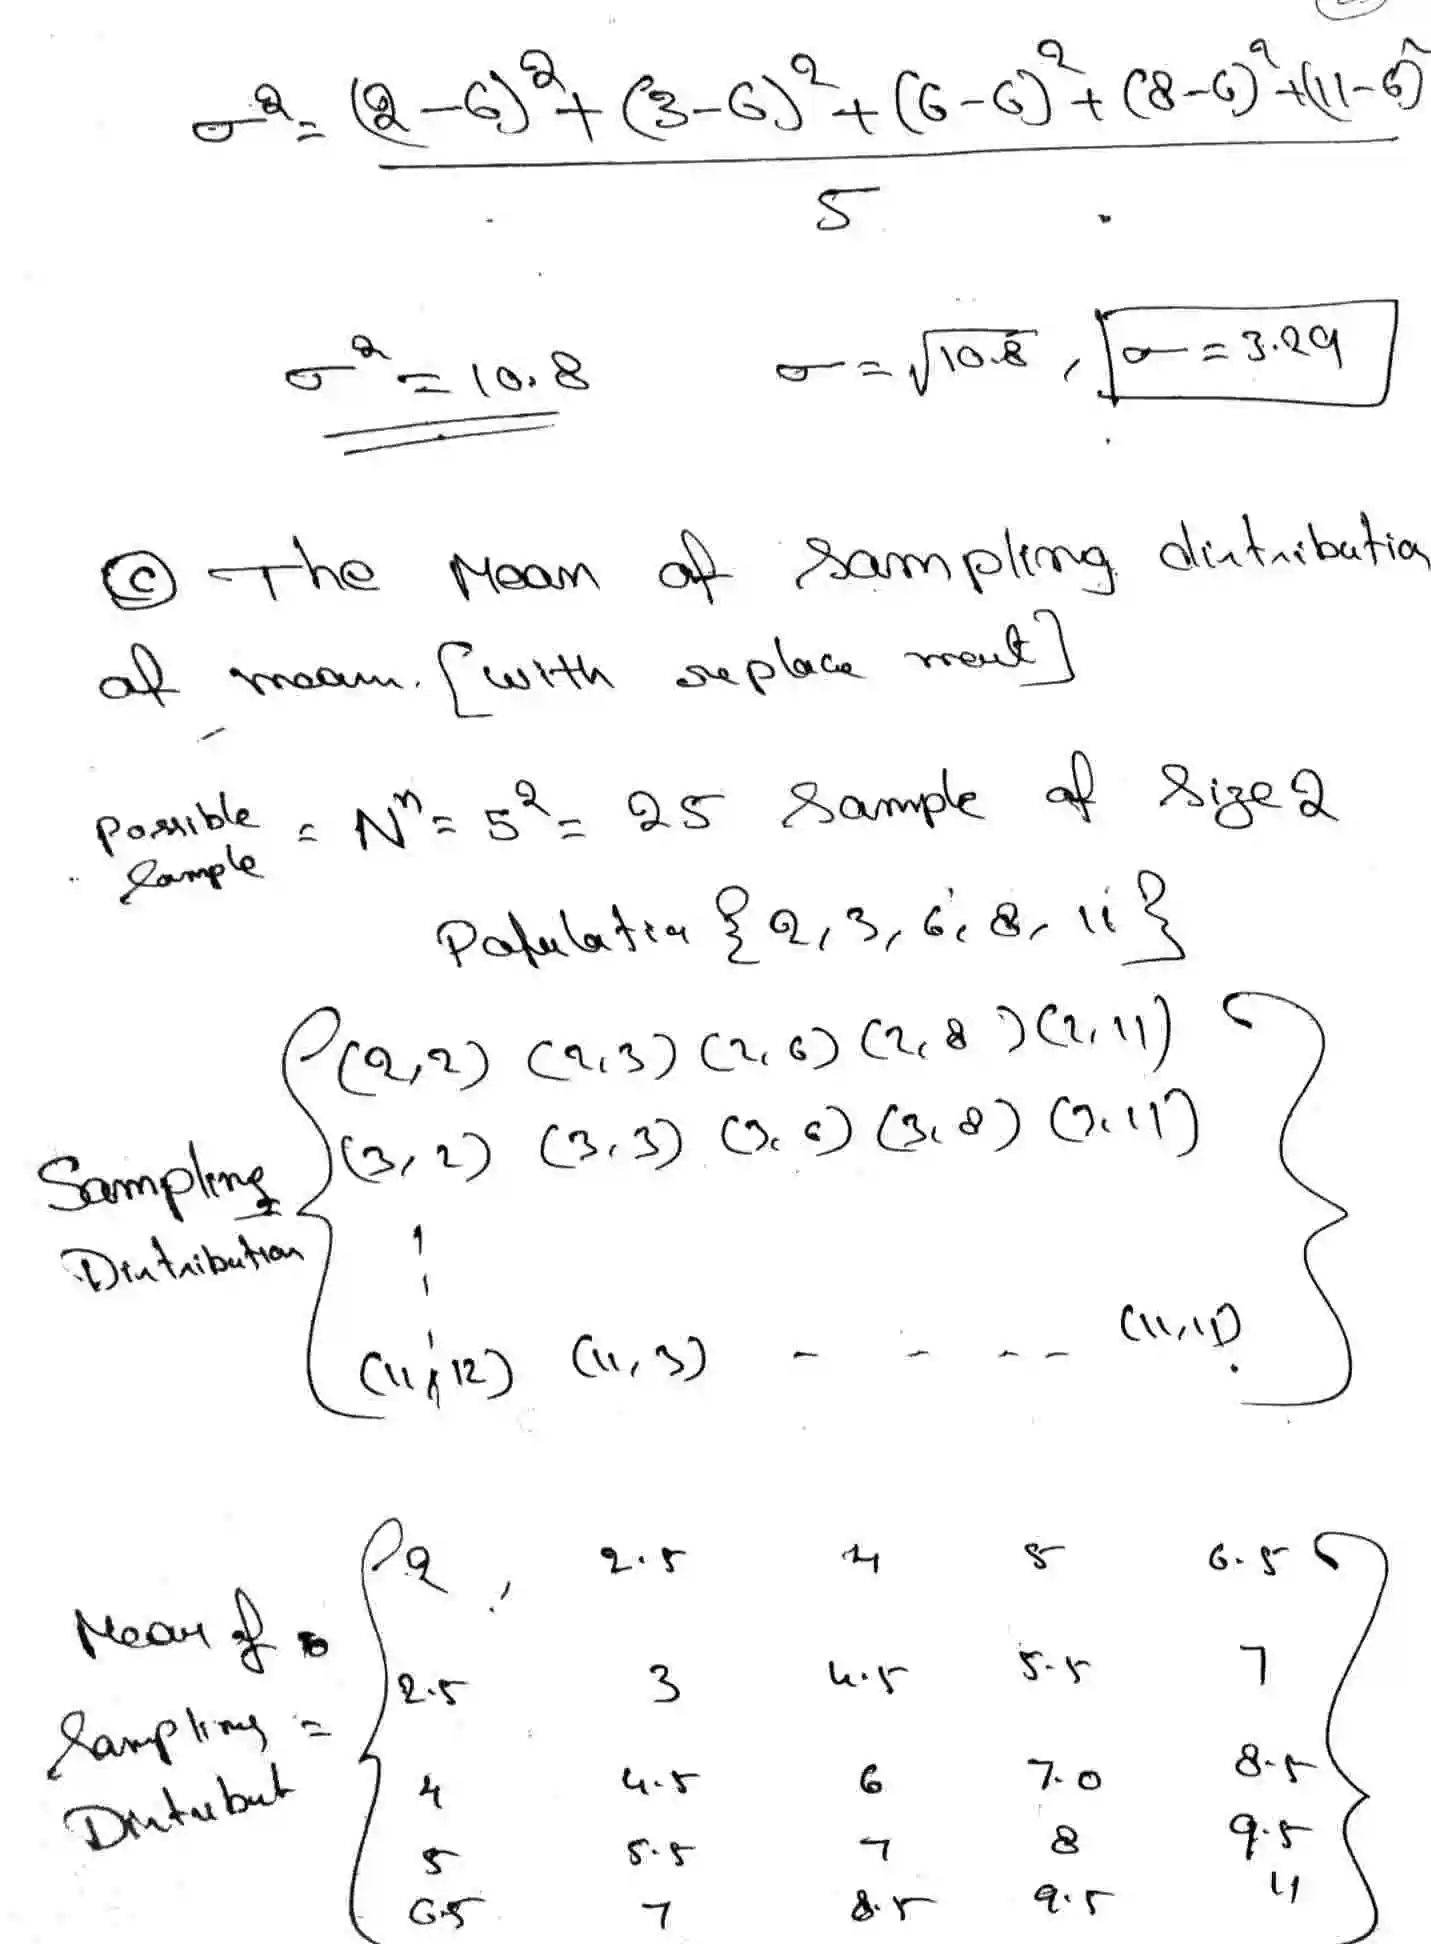 σ² = (2-6)² + (3-6)² + (6-6)² + (8-6)² + (11-6)²
5
σ² = 10.8 σ = √10.8 , σ = 3.29
(C) The Mean of Sampling distribution
of mean. [with replace ment]
Possible Sample = Nⁿ = 5² = 25 Sample of Size 2
Population {2, 3, 6, 8, 11}
Sampling Distribution
(2,2) (2,3) (2,6) (2,8) (2,11)
(3,2) (3,3) (3,6) (3,8) (3,11)
(11,12) (11,3) - - - - (11,11)
Mean of Sampling Distribut =
2 , 2.5 4 5 6.5
2.5 3 4.5 5.5 7
4 4.5 6 7.0 8.5
5 5.5 7 8 9.5
6.5 7 8.5 9.5 11